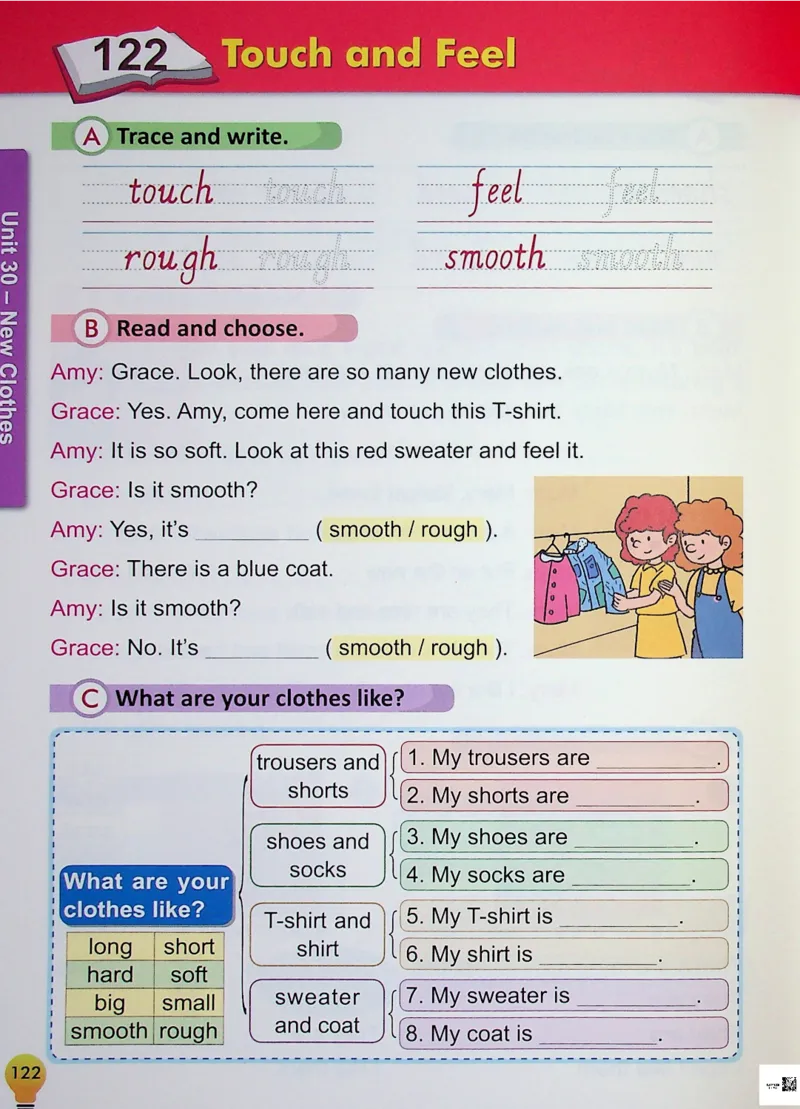 122 Touch and Feel
A Trace and write.
touch touch feel feel
rough rough smooth smooth
Unit 30 – New Clothes
B Read and choose.
Amy: Grace. Look, there are so many new clothes.
Grace: Yes. Amy, come here and touch this T-shirt.
Amy: It is so soft. Look at this red sweater and feel it.
Grace: Is it smooth?
Amy: Yes, it's __________ ( smooth / rough ).
Grace: There is a blue coat.
Amy: Is it smooth?
Grace: No. It's __________ ( smooth / rough ).
C What are your clothes like?
What are your
clothes like?
long short
hard soft
big small
smooth rough
trousers and
shorts
1. My trousers are __________.
2. My shorts are __________.
shoes and
socks
3. My shoes are __________.
4. My socks are __________.
T-shirt and
shirt
5. My T-shirt is __________.
6. My shirt is __________.
sweater
and coat
7. My sweater is __________.
8. My coat is __________.
122